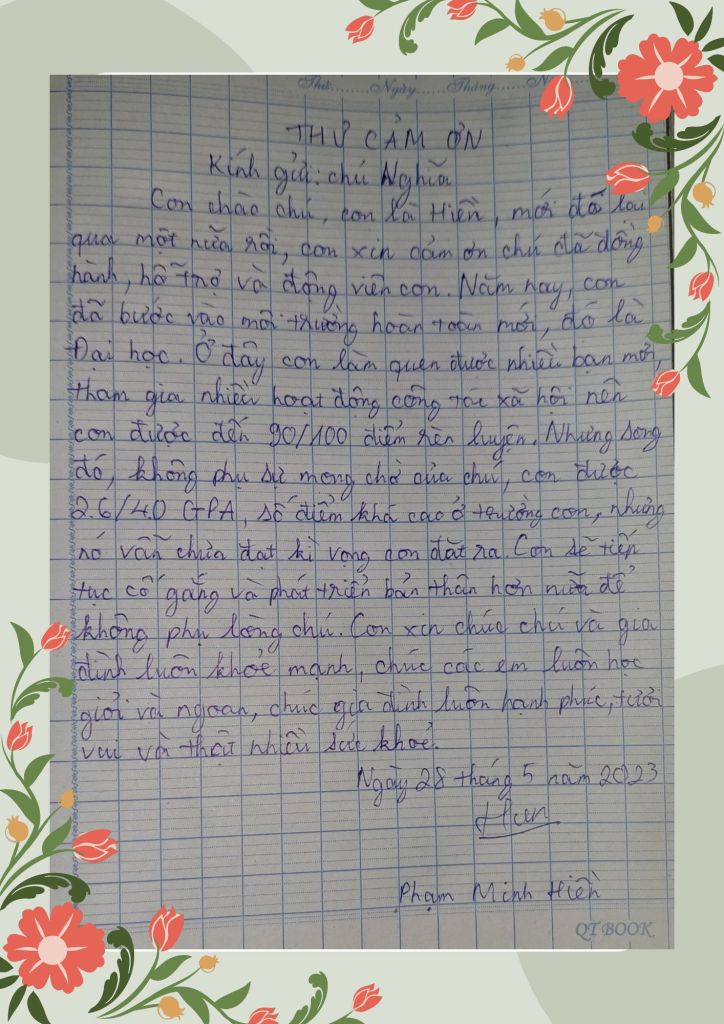 Thứ........Ngày........Tháng........N
THƯ CẢM ƠN
Kính gửi: chú Nghĩa
Con chào chú, con là Hiền, mới đã lâu
qua một nữa rồi, con xin cảm ơn chú đã đồng
hành, hỗ trợ và động viên con. Năm nay, con
đã bước vào môi trường hoàn toàn mới, đó là
Đại học. Ở đây con làm quen được nhiều bạn mới,
tham gia nhiều hoạt động công tác xã hội nên
con được đến 90/100 điểm rèn luyện. Nhưng song
đó, không phụ sự mong chờ của chú, con được
2.6/4.0 GPA, số điểm khá cao ở trường con, nhưng
nó vẫn chưa đạt kì vọng con đặt ra. Con sẽ tiếp
tục cố gắng và phát triển bản thân hơn nữa để
không phụ lòng chú. Con xin chúc chú và gia
đình luôn khoẻ mạnh, chúc các em luôn học
giỏi và ngoan, chúc gia đình luôn hạnh phúc, tươi
vui và thật nhiều sức khoẻ.
Ngày 28 tháng 5 năm 2023
Phạm Minh Hiền
QT BOOK